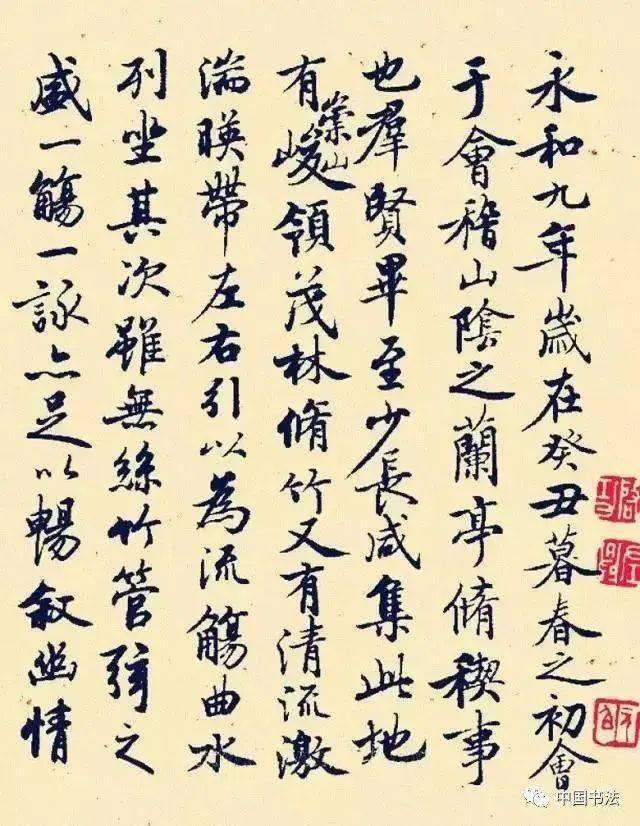 永和九年歲在癸丑暮春之初會
于會稽山陰之蘭亭脩稧事
也羣賢畢至少長咸集此地
有崇山峻領茂林脩竹又有清流激
湍暎帶左右引以為流觴曲水
列坐其次雖無絲竹管弦之
盛一觴一詠亦足以暢敘幽情
中国书法